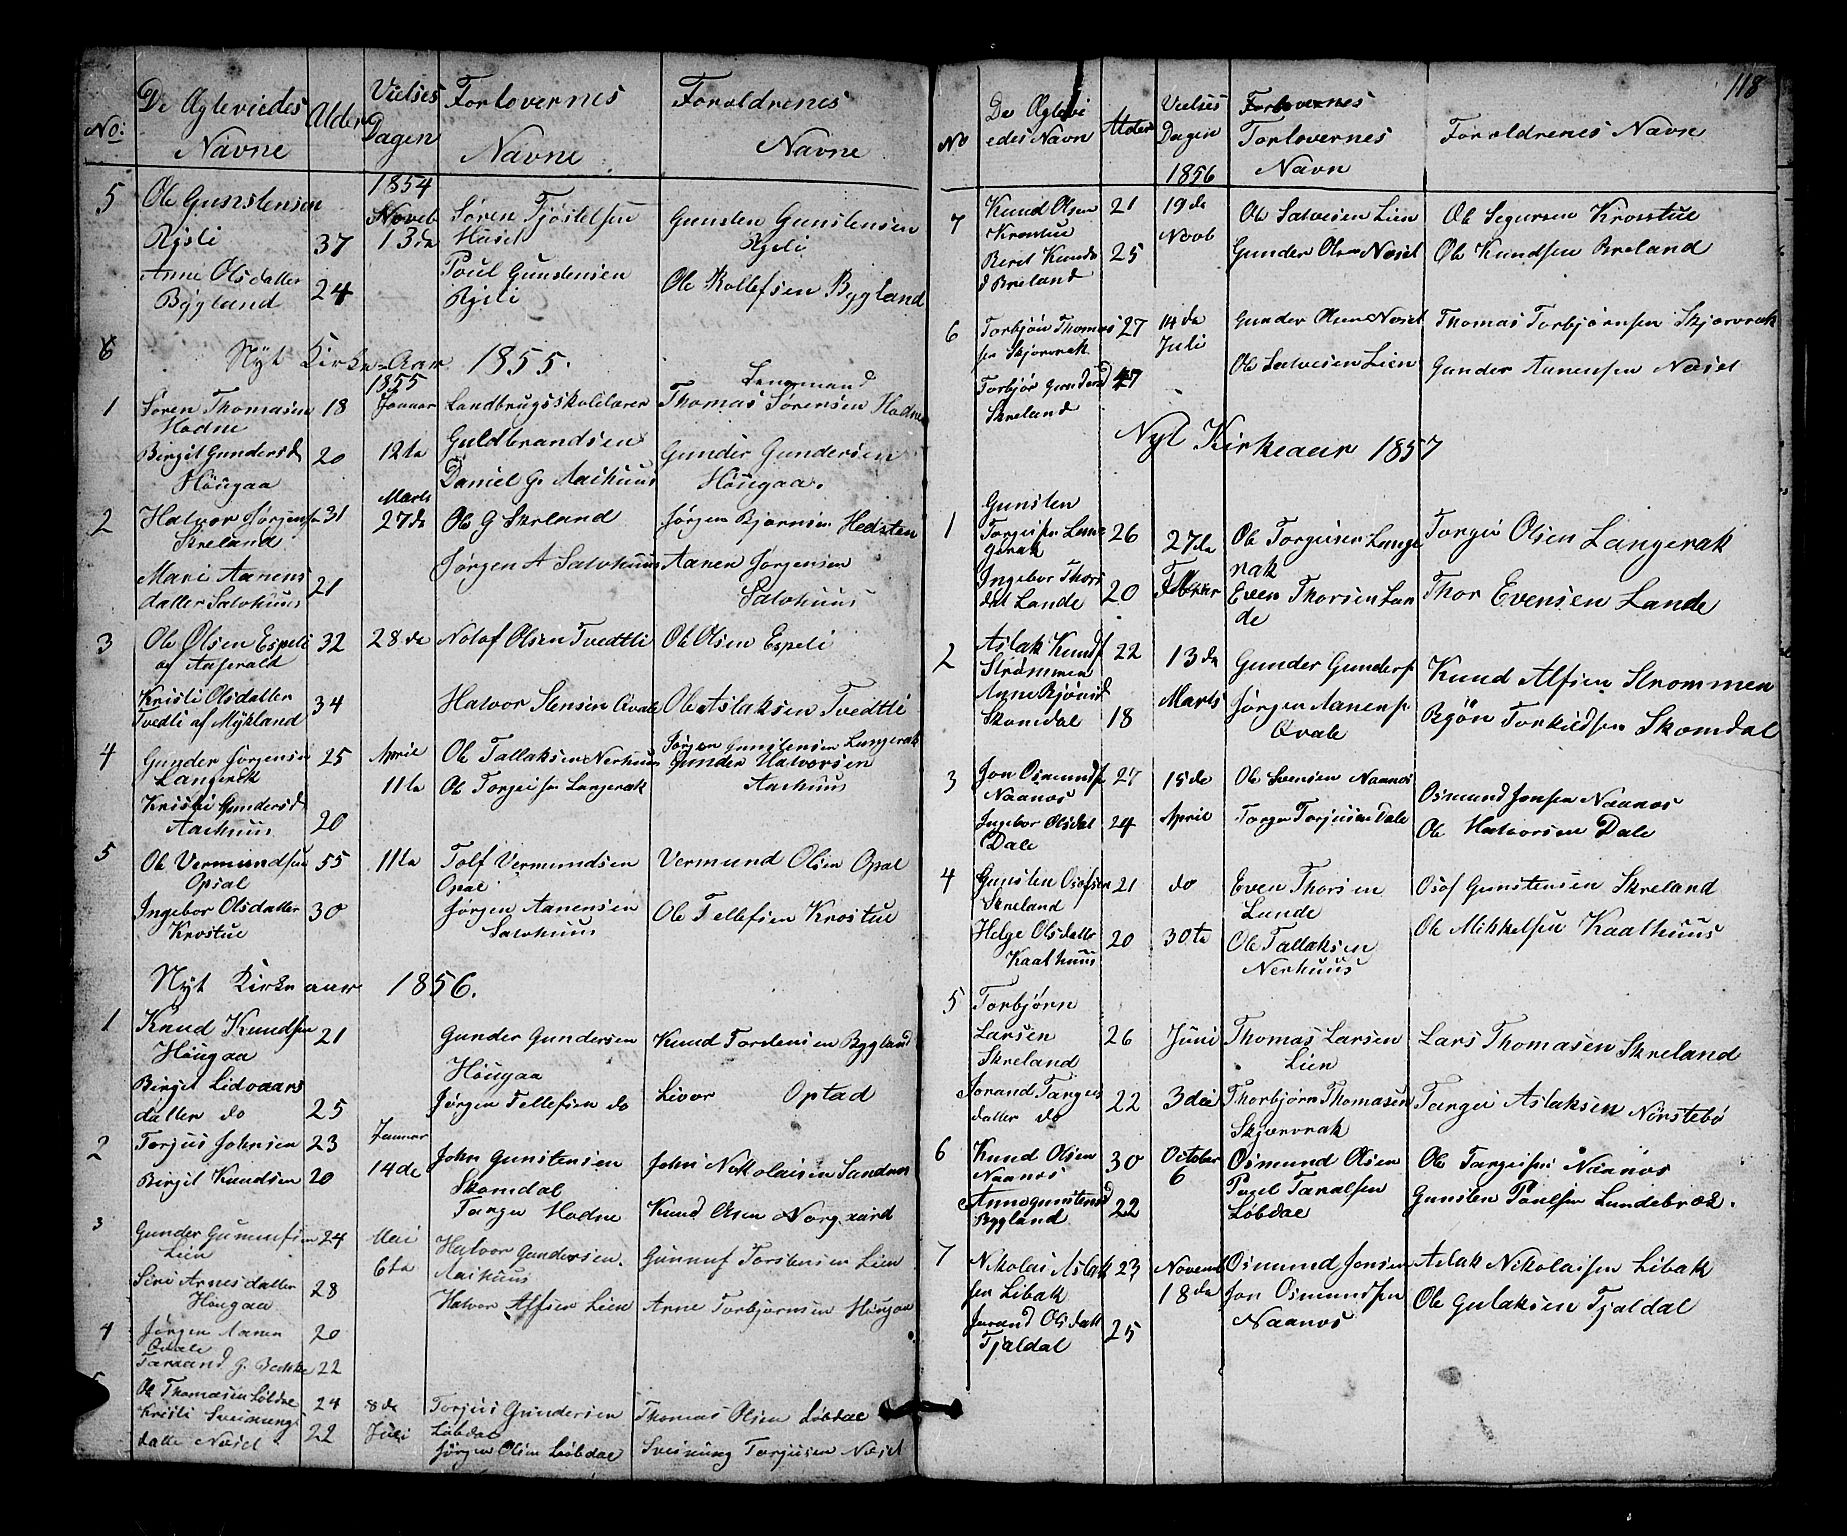 No:
De Ægteviedes
Navne
Alder
Vielses
Dagen
Forlovernes
Navne
Foreldrenes
Navne
1854
5
Ole Gunstensen
Rjsli
37
Noveb
13de
Søren Tjøstelsen
Huset
Gunsten Gunstensen
Rjsli
Anne Olsdatter
Bygland
24
Poul Gunstensen
Rjsli
Ole Rollefsen Bygland
6
Nyt Kirke-Aar 1855.
1855
1
Søren Thomasen
Hodne
18
Januar
Landbrugsskolelærer
Guldbrandsen
Lensmand
Thomas Sørensen Hodne
Birgit Gundersd
Höugaa
20
12te
Daniel G. Aaihuus
Gunder Gundersen
Höugaa.
2
Halvor Jørgensen
Skreland
31
Marts
27de
Ole G Skreland
Jørgen Bjørnsen Hedsten
Mari Aanens
datter Salvhuus
21
Jørgen A Salvhuus
Aanen Jørgensen
Salvhuus
3
Ole Olsen Espeli
af Aaseralt
32
28de
Notof Olsen Tvedtli
Ole Olsen Espeli
Kristi Olsdatter
Tvedli af Mykland
34
Halvor Stensen Qvale
Ole Aslaksen Tvedtli
4
Gunder Jørgensen
Langerak
25
April
11te
Ole Tallaksen Nerhuus
Jørgen Gunstensen Langerak
Kristi Gundersd
Aaihuus
20
Ole Torgeisen Langerak
Gunder Halvorsen
Aaihuus
5
Ole Vermundsen
Opsal
55
11te
Tolf Vermundsen
Opsal
Vermund Olsen Opsal
Ingebor Olsdatter
Krostue
30
Jørgen Aanensen
Salvhuus
Ole Tellefsen Krostue
Nyt Kirkeaar 1856.
1
Knud Knudsen
Höugaa
21
Gunder Gundersen
Höugaa
Knud Tordensen Bygland
Birgit Lidvaars
datter do
25
Jørgen Tellefsen do
Livor Opstad
2
Torjus Johnsen
23
Januar
14de
John Gunstensen
Skomdal
John Nikolaisen Sandnes
Birgit Knudsen
20
Targe Hodne
Knud Olsen Norgaard
3
Gunder Gunnufsen
Lien
24
Mai
6te
Halvor Gundersen.
Aaihuus
Gunnuf Torstensen Lien
Siri Arnesdatter
Höugaa
28
Halvor Alfsen Lien
Arne Torbjørnsen Höugaa
4
Jørgen Aanen
Qvale
20
Taraand G. Bakke
22
5
Ole Thomasen Løbdal
24
8de
Juli
Torjus Gundersen
Løbdal
Thomas Olsen Løbdal
Kristi Sveinungs
datte Næset
22
Jørgen Olsen Løbdal
Sveinung Torjusen Næset
118
No
De Ægtevi
edes Navn
Alder
Vielses
Dagen
1856
Forlovernes
Forlovernes
Navn
Foreldrenes Navn
7
Knud Olsen
Krostue
21
19de
Novb
Ole Salvesen Lien
Ole Segursen Krosstue
Berit Knuds
d Breland
25
Gunder Olsen Næset
Ole Knudsen Breland
6
Torbjön Thomas
sen Skjævrak
27
14de
Juli
Gunder Olsen Næset
Thomas Torbjørnsen Skjævrak
Torbjør Gundersd
Skreland
47
Ole Salvesen Lien
Gunder Aanensen Næset
Nyt Kirkeaar 1857
1
Gunsten
Torgeisen Lange
rak
26
27de
Februar
Ole Torgeisen Lange
rak
Torgei Olsen Langerak
Ingebor Thors
dat Lande
20
Even Thorsen Lan
de
Thor Evensen Lande
2
Aslak Knuds
Strømmen
22
13de
Marts
Gunder Gunders
Knud Alfsen Strommen
Anne Bjönsd
Skomdal
18
Jørgen Aanens
Qvale
Bjön Torkildsen Skomdal
3
Jon Osmunds
Naanos
27
15de
April
Ole Svensen Naanos
Osmund Jonsen Naanos
Ingebor Olsdat
Dale
24
Torger Torjusen Dale
Ole Halvorsen Dale
4
Gunsten Osofsen
Skreland
21
do
30te
Even Thorsen
Lunde
Osof Gunstensen Skreland
Helge Olsdatte
Kaalhuus
20
Ole Tallaksen
Nerhuus
Ole Mikkelsen Kaalhuus
5
Torbjørn
Larsen
Skreland
26
Juni
3die
Thomas Larsen
Lien
Lars Thomasen Skreland
Jorand Targes
datter do
22
Thorbjørn Thomasen
Skjævrak
Targei Aslaksen Nörstebö
6
Knud Olsen
Naanos
30
October
6
Osmund Olsen
Ole Targeisen Naanos
Anne Gunstensd
Bygland
22
Poul Taralsen
Løbdal
Gunsten Poulsen Lundebræk.
7
Nikolai Aslak
sen Libak
23
Novemb
18de
Osmund Jonsen
Aslak Nikolaisen Libak
Jorand Olsdatt
Tjaldal
25
Jon Osmundsen
Naanos
Ole Gulaksen Tjaldal